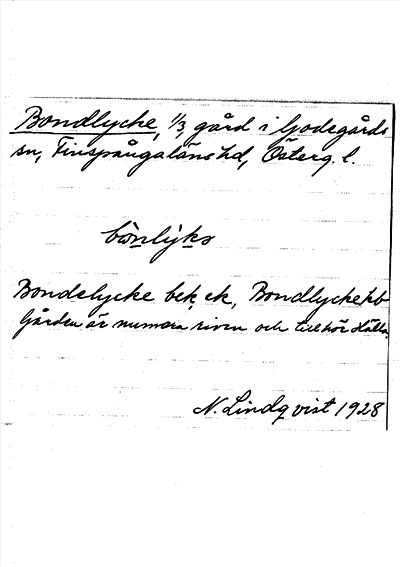 Bondlycke, 1/3, gård i Godegårds
sn, Finspångaläns hd, Österg. l.
Bondelycke bek, ek, Bondlycke hb
Gården är numera riven och tillhör Hälla.
N. Lindqvist 1928